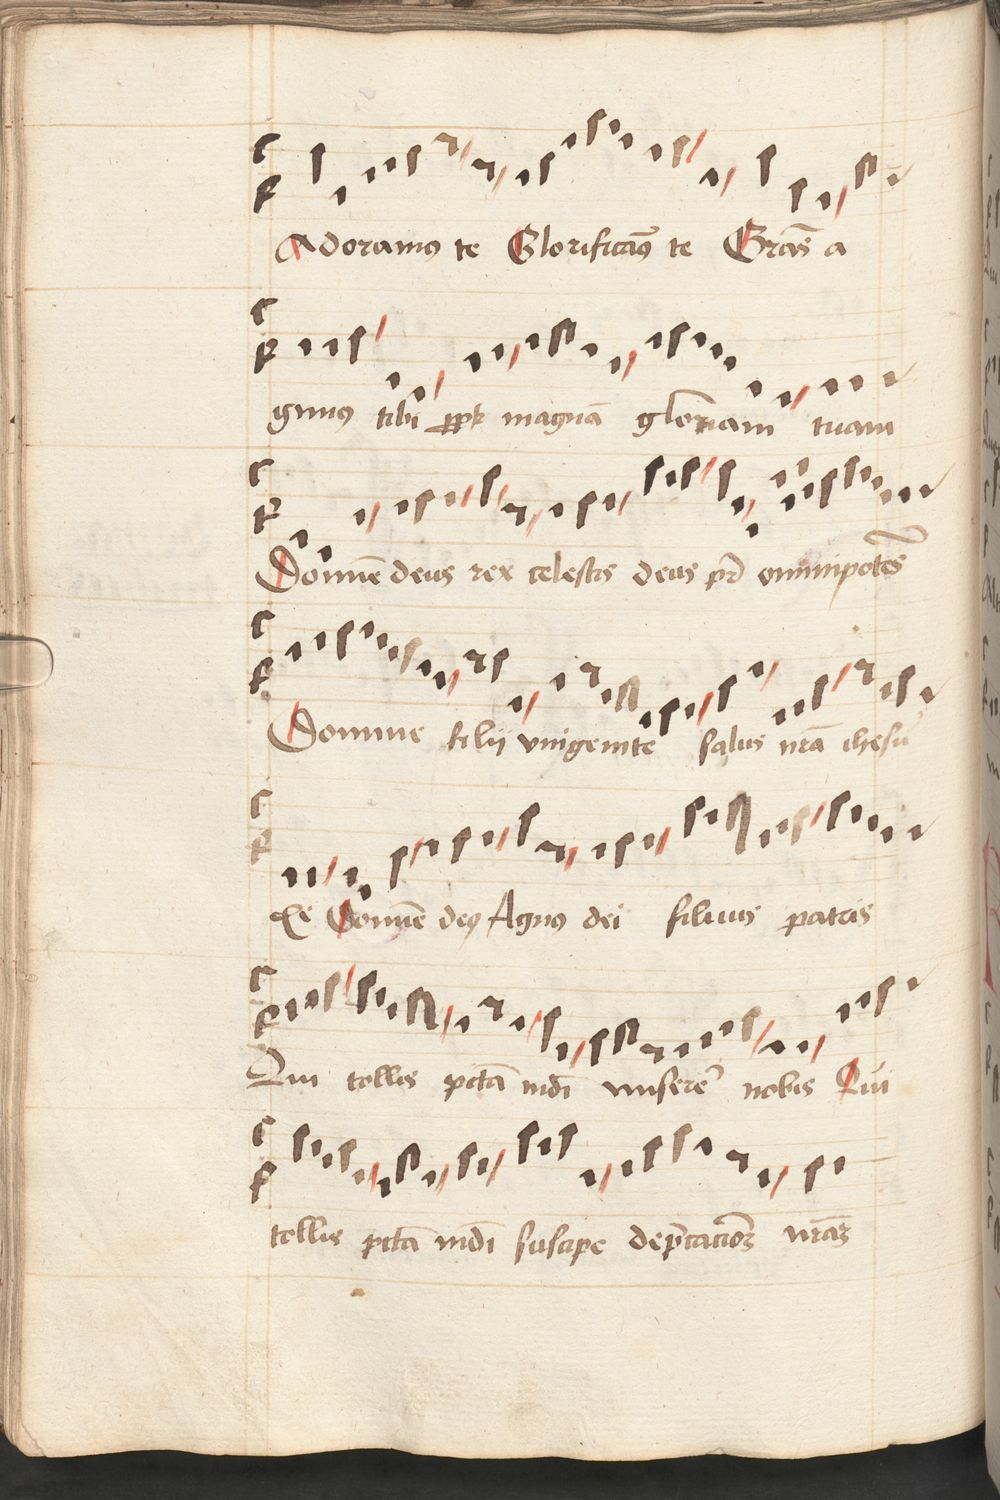 Adoramus te Glorificam9 te Gra͞s a
gim9 tibi ꝓpt magnā gloriam tuam
Domīe deus rex celestis deus pr̄ omnipotēs
Domine fili vnigenite salus nr̄a ihesu
xp̄e Domīe de9 Agn9 dei filius patris
Qui tollis pctā mdī miserere nobis Qui
tollis pctā mdī suscipe dep̄cationē nr̄aꝫ